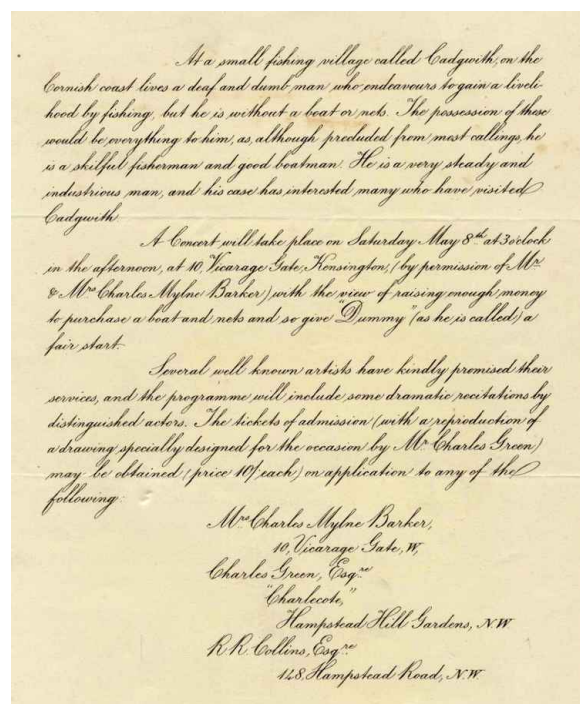 At a small fishing village called Cadgwith, on the
Cornish coast lives a deaf and dumb man who endeavours to gain a liveli-
hood by fishing, but he is without a boat or nets. The possession of these
would be everything to him, as, although precluded from most callings, he
is a skilful fisherman and good boatman. He is a very steady and
industrious man, and his case has interested many who have visited
Cadgwith.
A Concert will take place on Saturday May 8th at 3 o'clock
in the afternoon, at 10, Vicarage Gate, Kensington, (by permission of Mr
& Mrs Charles Mylne Barker) with the view of raising enough money
to purchase a boat and nets and so give "Dummy" (as he is called) a
fair start.
Several well known artists have kindly promised their
services, and the programme will include some dramatic recitations by
distinguished actors. The tickets of admission (with a reproduction of
a drawing specially designed for the occasion by Mr Charles Green)
may be obtained (price 10/ each) on application to any of the
following:
Mrs Charles Mylne Barker,
10, Vicarage Gate, W,
Charles Green, Esqre
"Charlecote,"
Hampstead Hill Gardens, NW
R R Collins, Esqre
148, Hampstead Road, N.W.